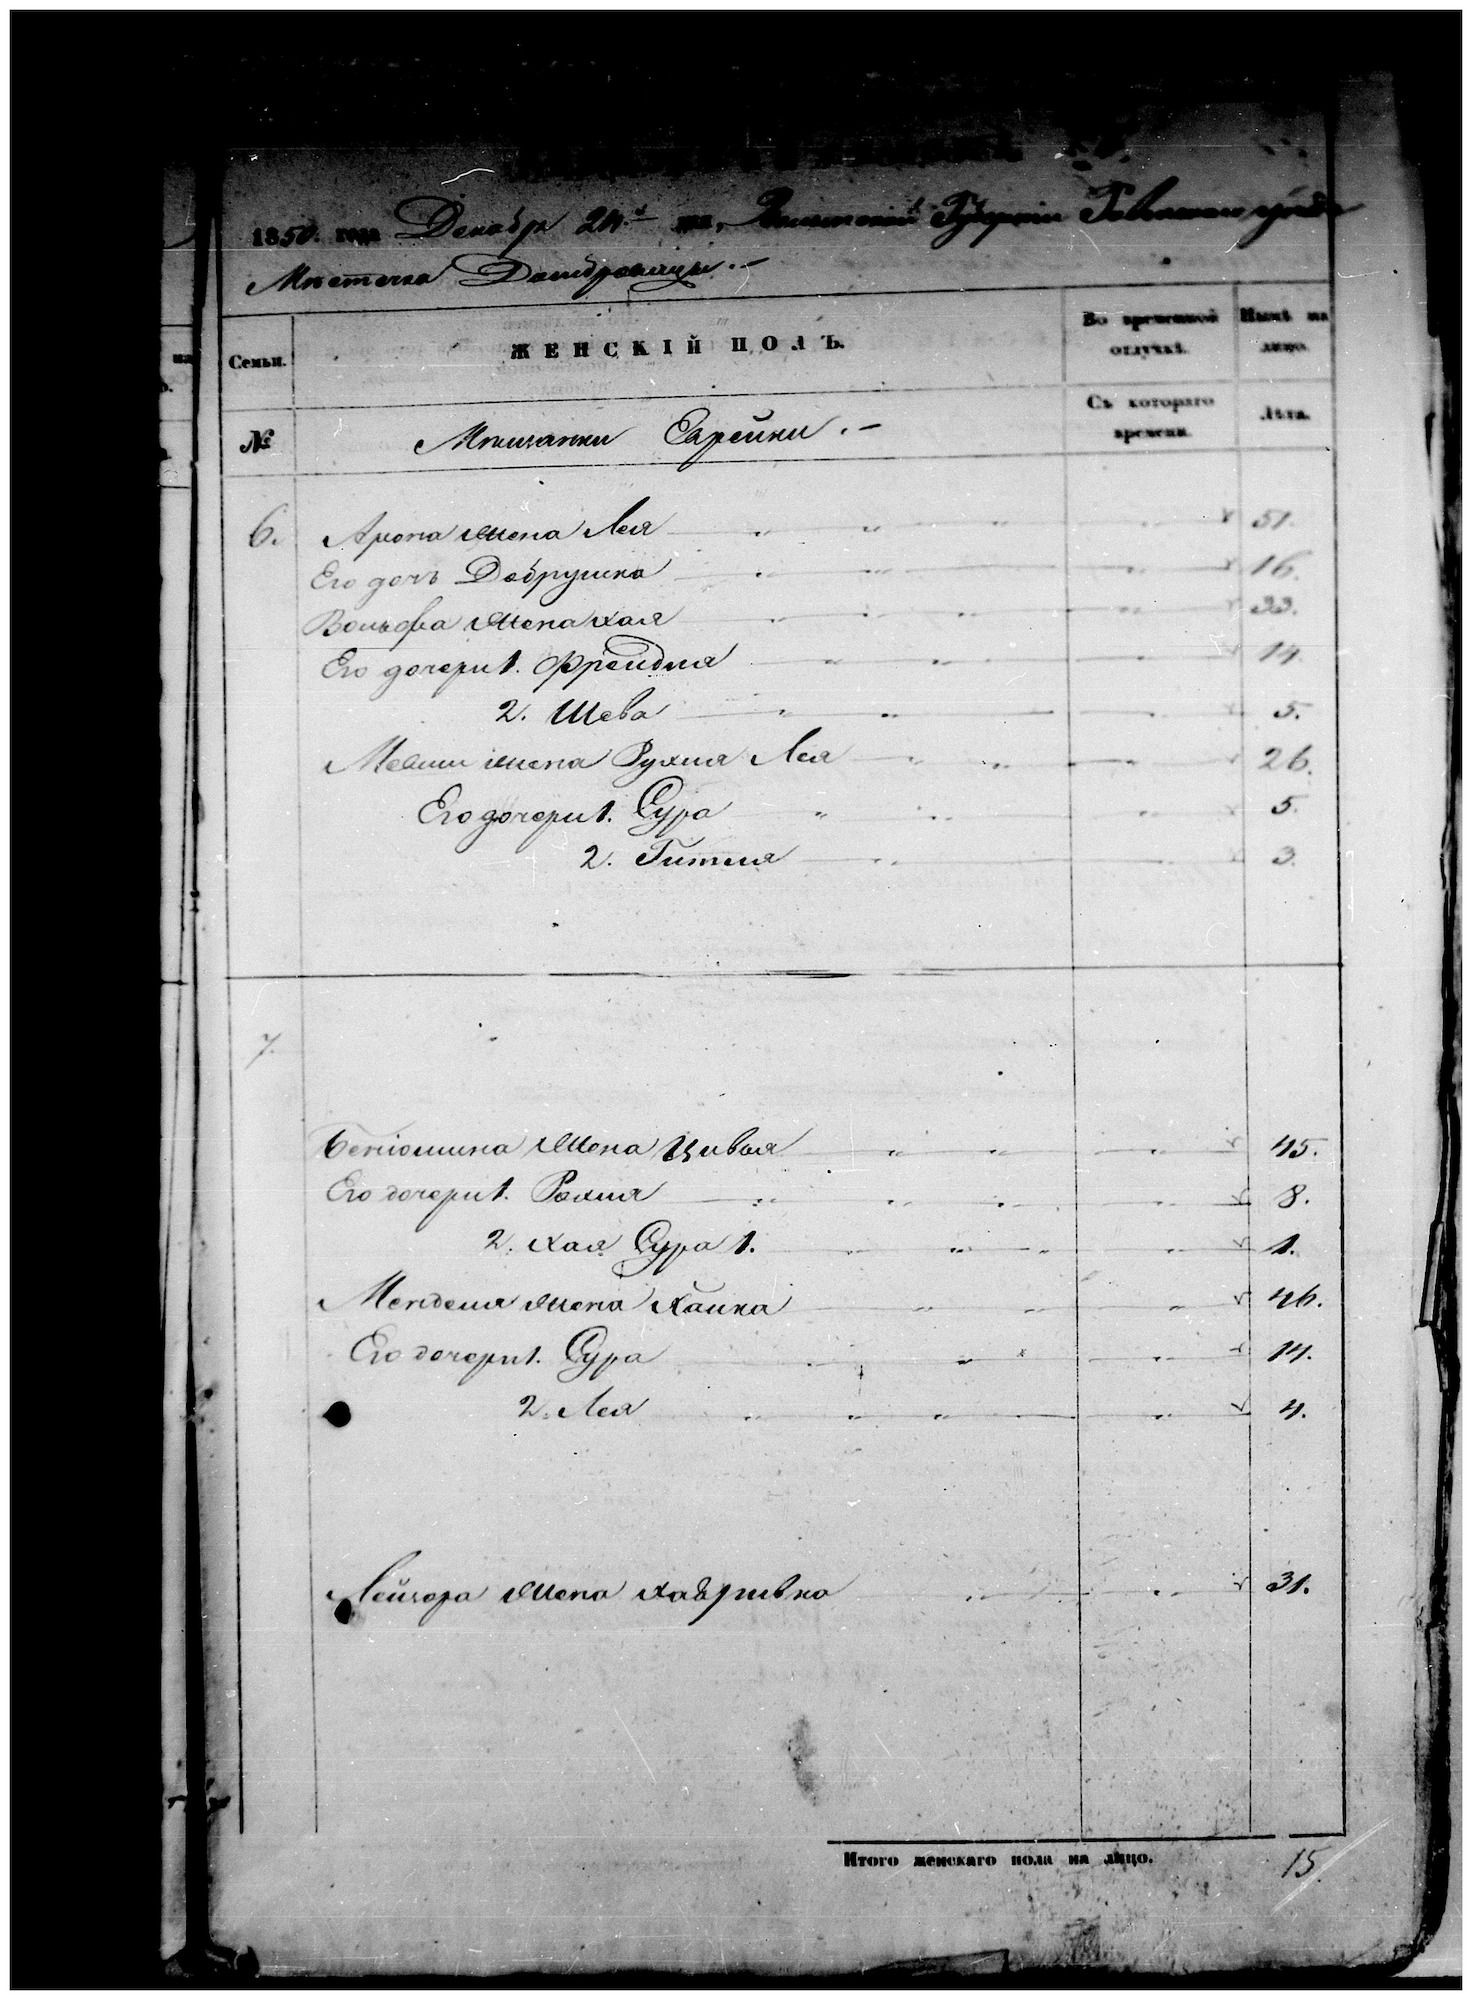 1850. года Декабря 24.го дня, Волынской Губернии Ровенского уезда
Мѣстечка Домбровицы. -
Семьи.
ЖЕНСКІЙ ПОЛЪ.
Во временной отлучкѣ.
Нынѣ на лицо.
№
Мѣщанки Еврейки. -
Съ котораго времени.
Лѣта.
6. Арона жена Лея " " " " 51.
Его дочь Добрушка " " " 16.
Вольфа жена Хая " " " " 33.
Его дочери 1. Фрейдля " " " 14.
2. Шева " " " 5.
Мовши жена Рухля Лея " " " 26.
Его дочери 1. Сура " " " 5.
2. Гитля " " 3.
7.
Беніомина жена Цивья " " " 45.
Его дочери 1. Рохля " " " " 8.
2. Хая Сура 1. " " " " 1.
Менделя жена Хайка " " " 46.
Его дочери 1. Сура " " " 14.
2. Лея " " " " 4.
Лейзора жена Хаяривка " " " 31.
Итого женскаго пола на лицо. 15.